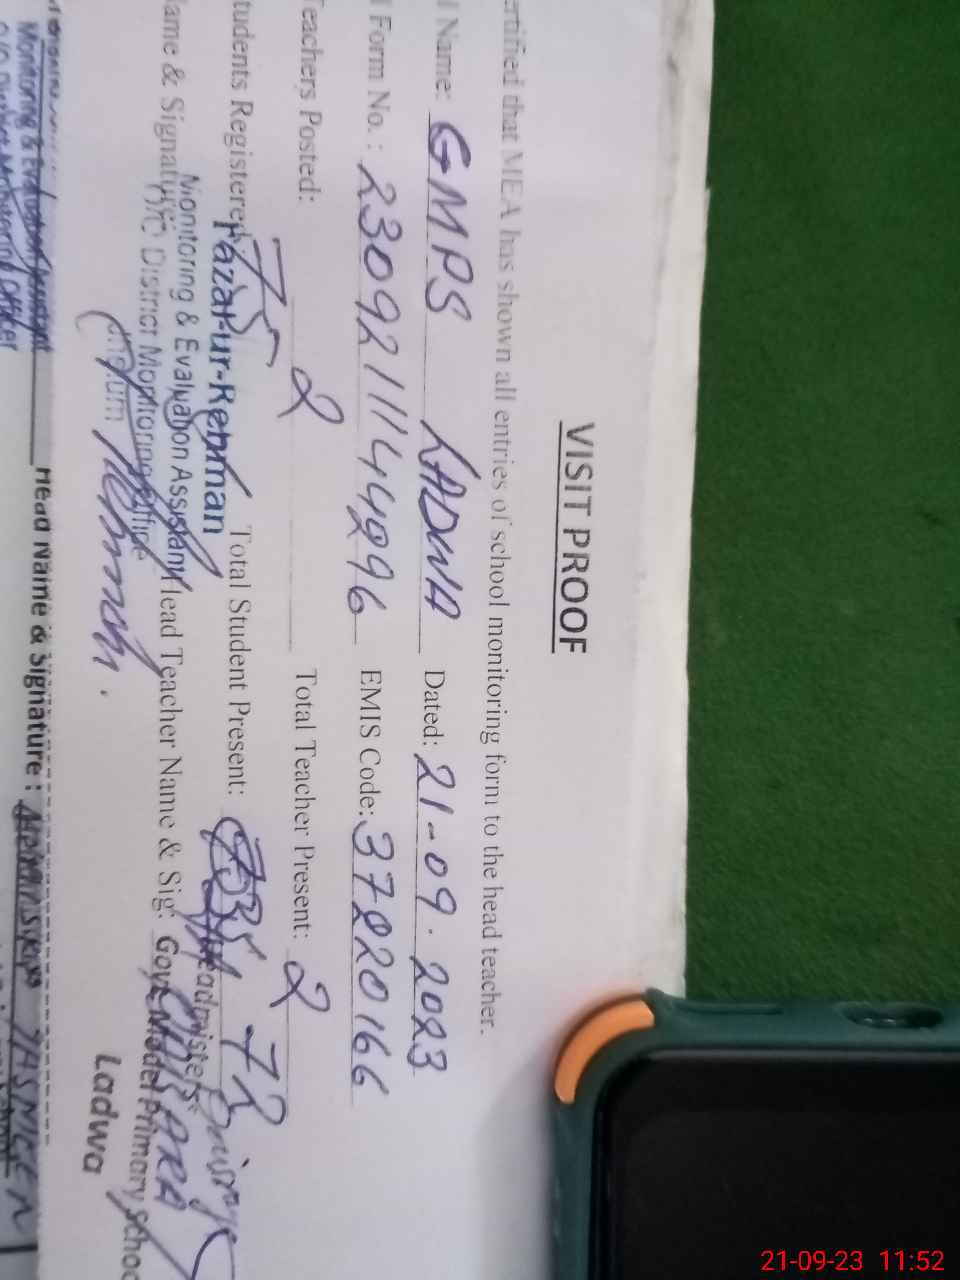 VISIT PROOF
ertified that MEA has shown all entries of school monitoring form to the head teacher.
l Name: GMPS LADWA Dated: 21-09-2023
l Form No.: 2309211144296 EMIS Code: 37220166
Teachers Posted: 2 Total Teacher Present: 2
tudents Registered: 75 Total Student Present: 72
Fazal-ur-Rehman
Monitoring & Evaluation Assistant
ame & Signature: Head Teacher Name & Sig:
O/O District Monitoring Office
Jhelum
Headmistress
Govt. Model Primary School
Ladwa
Monitoring & Evaluation Assistant
O/O District Monitoring Officer
Head Name & Signature:
21-09-23 11:52